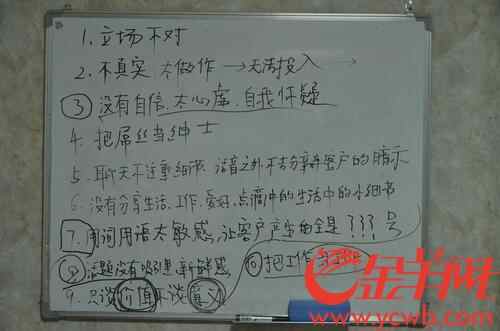 1. 立场不对
2. 不真实 太做作 →无法投入 →
③ 没有自信、太心虚、自我怀疑
4. 把屌丝当绅士
5. 聊天不注重细节、话音之外不去分享客户的暗示
6. 没有分享生活、工作、爱好、点滴中的生活中的小细节
7. 用词用语太敏感,让客户产生的全是???号
⑧ 话题没有吸引 新鲜感
9. 只谈价值不谈意义
⑩ 把工作
金羊网
www.ycwb.com